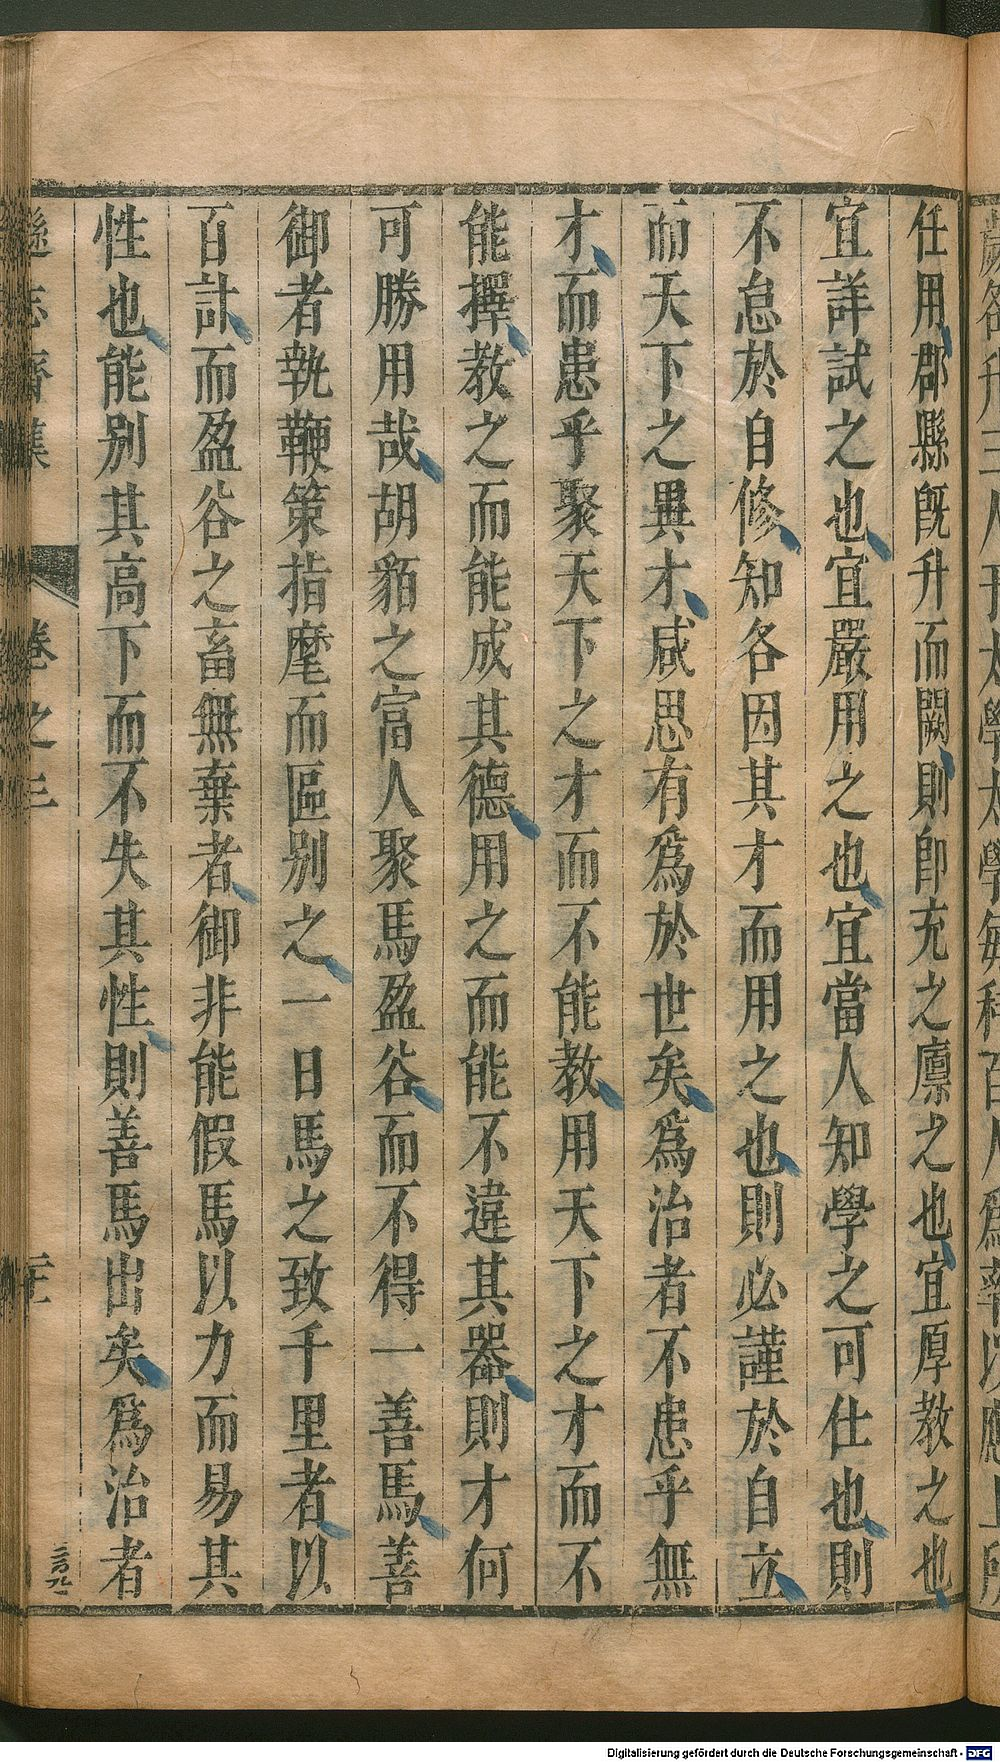 任用郡縣旣升而闕則卽充之廩之也宜厚教之也
宜詳試之也宜嚴用之也宜當人知學之可仕也則
不怠於自修知各因其才而用之也則必謹於自立
而天下之異才咸思有爲於世矣爲治者不患乎無
才而患乎聚天下之才而不能教用天下之才而不
能擇教之而能成其德用之而能不違其器則才何
可勝用哉胡貊之富人聚馬盈谷而不得一善馬善
御者執鞭策指麾而區别之一日馬之致千里者以
百計而盈谷之畜無棄者御非能假馬以力而易其
性也能别其高下而不失其性則善馬出矣爲治者
遜志齋集
卷之三
Digitalisierung gefördert durch die Deutsche Forschungsgemeinschaft - DFG